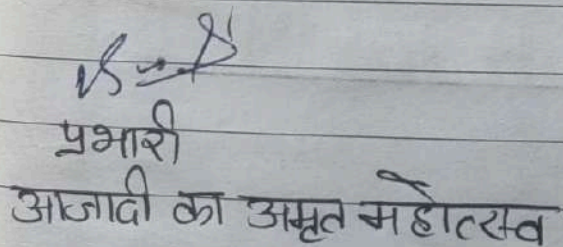 प्रभारी
आजादी का अमृत महोत्स्व